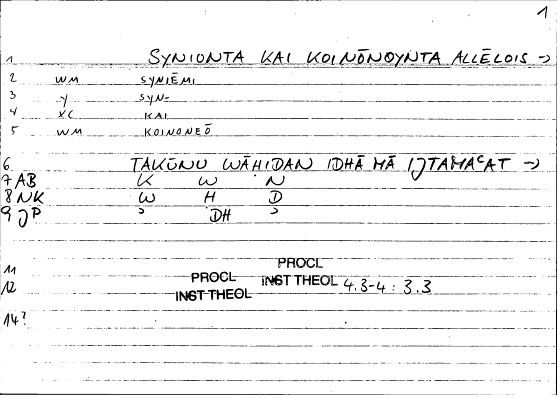 1
1 SYNIONTA KAI KOINŌNOYNTA ALLĒLOIS →
2 WM SYNIĒMI
3 -Y SYN-
4 XC KAI
5 WM KOINONEŌ
6 TAKŪNU WĀHIDAN IDHĀ MĀ IJTAMAʿAT →
7 AB K W N
8 NK W H D
9 JP ʾ DH ʾ
11 PROCL
12 PROCL INST THEOL 4.3-4 : 3.3
INST THEOL
14?